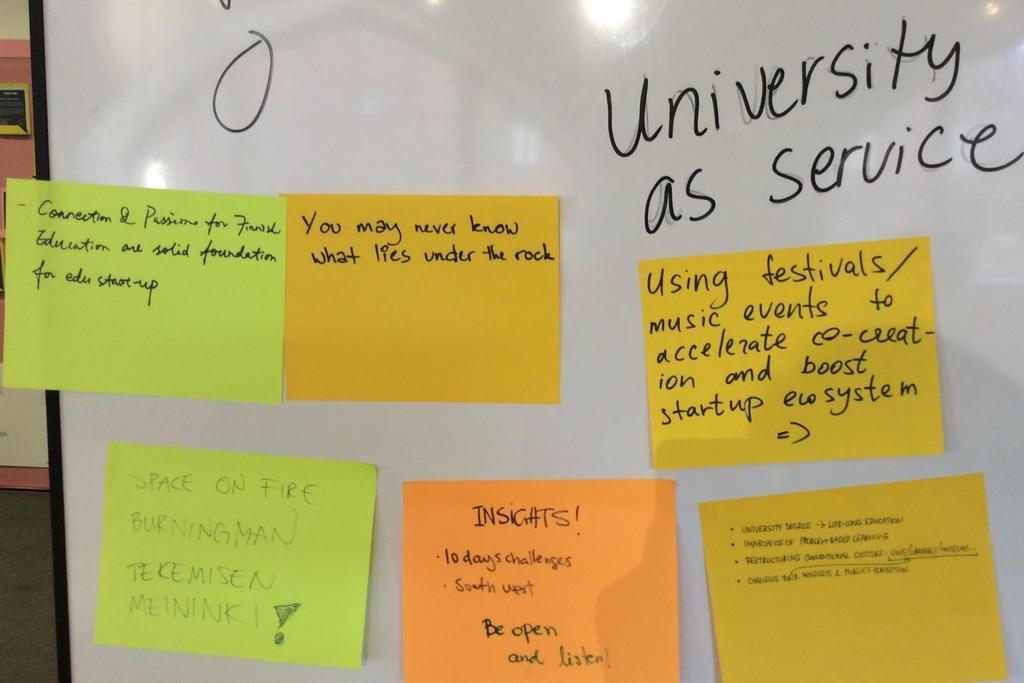 University
as service
- Connection & Passion for Finnish
Education are solid foundation
for edu start-up
You may never know
what lies under the rock
Using festivals/
music events to
accelerate co-creat-
ion and boost
startup ecosystem
=>
SPACE ON FIRE
BURNINGMAN
TEKEMISEN
MEININKI!
INSIGHTS!
· 10 days challenges
· South west
Be open
and listen!
• UNIVERSITY DEGREE → LIFE-LONG EDUCATION
• IMPORTANCE OF PROBLEM-BASED LEARNING
• RESTRUCTURING
• CHANGING THEIR MINDSETS & PUBLIC PERCEPTION